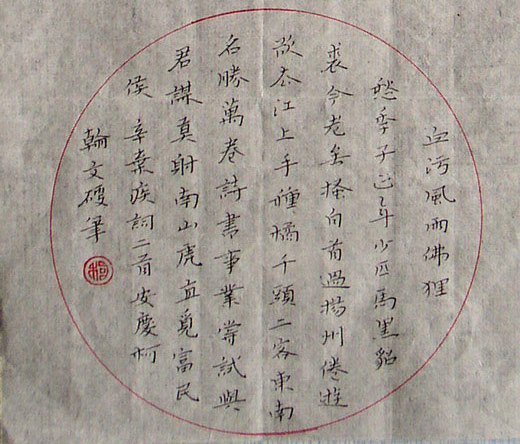 血污風雨佛狸
愁季子正年少匹馬黑貂
裘今老矣搔白首過揚州倦遊
欲去江上手種橘千頭二客東南
名勝萬卷詩書事業嘗試與
君謀莫射南山虎直覓富民
侯 辛棄疾詞二首 安慶柯
翰文硬筆